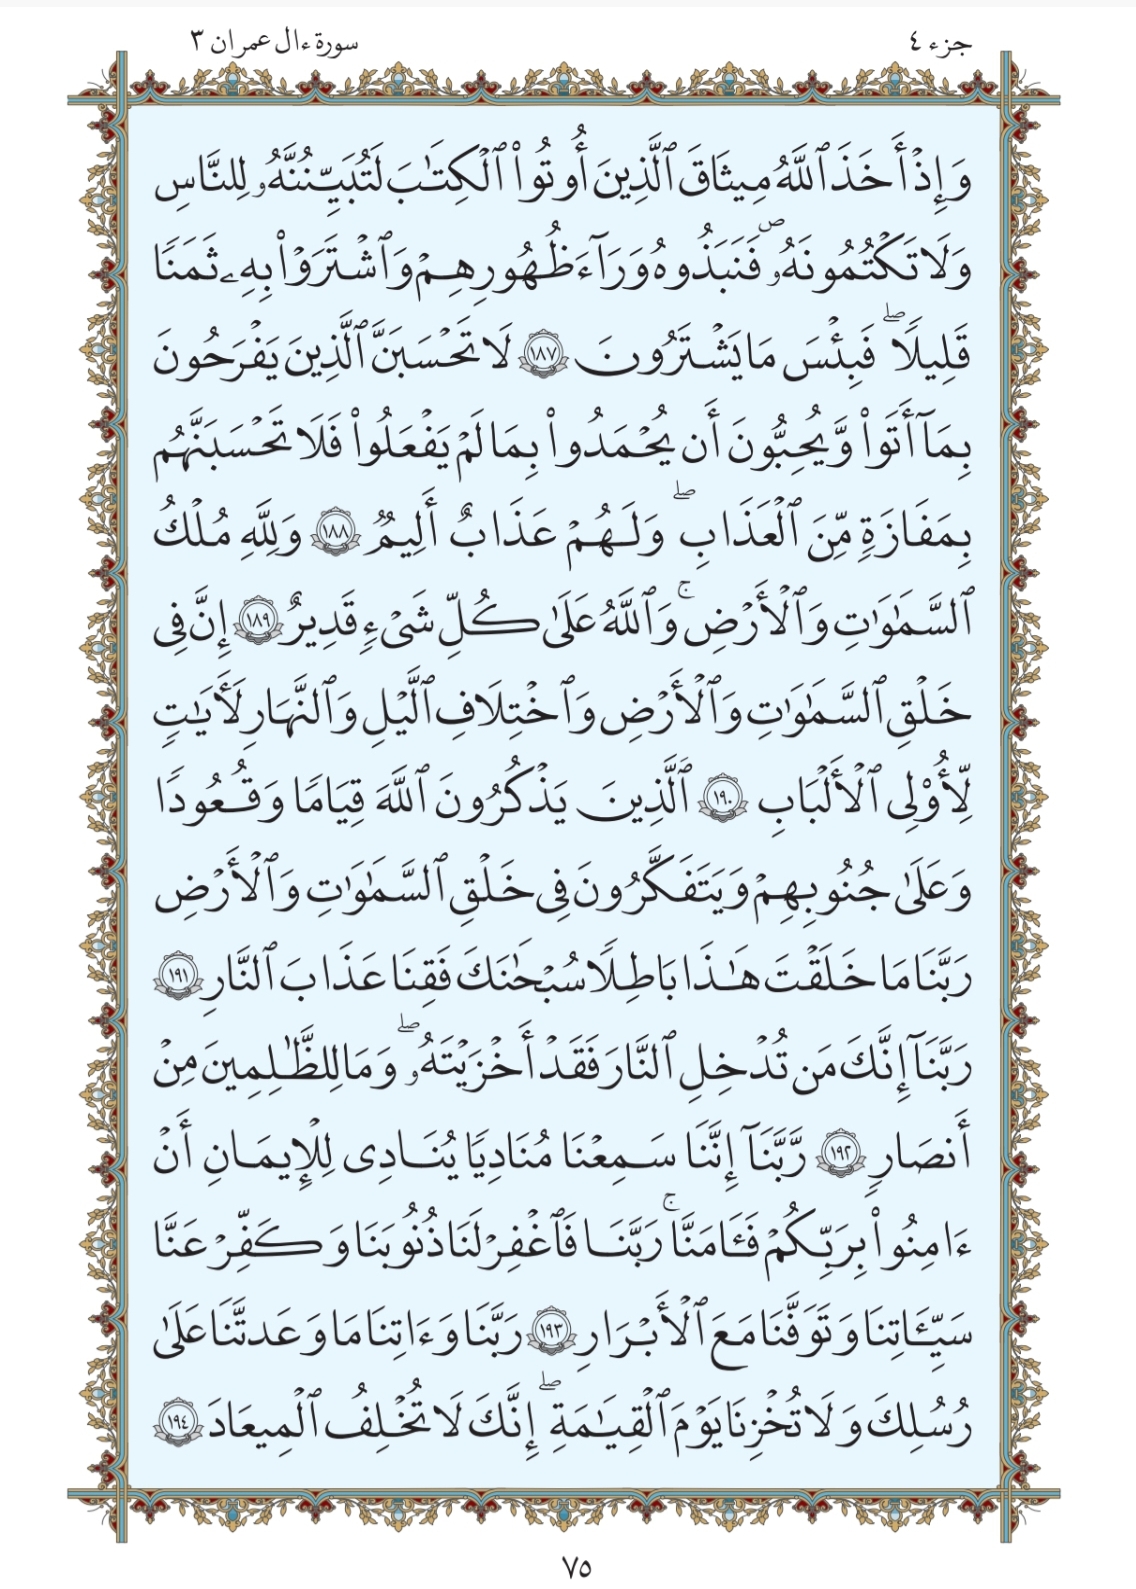 جزء ٤
سورة ءال عمران ٣
وَإِذْ أَخَذَ ٱللَّهُ مِيثَٰقَ ٱلَّذِينَ أُوتُوا۟ ٱلْكِتَٰبَ لَتُبَيِّنُنَّهُۥ لِلنَّاسِ
وَلَا تَكْتُمُونَهُۥ فَنَبَذُوهُ وَرَآءَ ظُهُورِهِمْ وَٱشْتَرَوْا۟ بِهِۦ ثَمَنًا
قَلِيلًا ۖ فَبِئْسَ مَا يَشْتَرُونَ ١٨٧ لَا تَحْسَبَنَّ ٱلَّذِينَ يَفْرَحُونَ
بِمَآ أَتَوا۟ وَّيُحِبُّونَ أَن يُحْمَدُوا۟ بِمَا لَمْ يَفْعَلُوا۟ فَلَا تَحْسَبَنَّهُم
بِمَفَازَةٍ مِّنَ ٱلْعَذَابِ ۖ وَلَهُمْ عَذَابٌ أَلِيمٌ ١٨٨ وَلِلَّهِ مُلْكُ
ٱلسَّمَٰوَٰتِ وَٱلْأَرْضِ ۚ وَٱللَّهُ عَلَىٰ كُلِّ شَىْءٍ قَدِيرٌ ١٨٩ إِنَّ فِى
خَلْقِ ٱلسَّمَٰوَٰتِ وَٱلْأَرْضِ وَٱخْتِلَافِ ٱلَّيْلِ وَٱلنَّهَارِ لَأَيَٰتٍ
لِّأُو۟لِى ٱلْأَلْبَابِ ١٩٠ ٱلَّذِينَ يَذْكُرُونَ ٱللَّهَ قِيَامًا وَقُعُودًا
وَعَلَىٰ جُنُوبِهِمْ وَيَتَفَكَّرُونَ فِى خَلْقِ ٱلسَّمَٰوَٰتِ وَٱلْأَرْضِ
رَبَّنَا مَا خَلَقْتَ هَٰذَا بَاطِلًا سُبْحَٰنَكَ فَقِنَا عَذَابَ ٱلنَّارِ ١٩١
رَبَّنَآ إِنَّكَ مَن تُدْخِلِ ٱلنَّارَ فَقَدْ أَخْزَيْتَهُۥ ۖ وَمَا لِلظَّٰلِمِينَ مِنْ
أَنصَارٍ ١٩٢ رَّبَّنَآ إِنَّنَا سَمِعْنَا مُنَادِيًا يُنَادِى لِلْإِيمَانِ أَنْ
ءَامِنُوا۟ بِرَبِّكُمْ فَـَٔامَنَّا ۚ رَبَّنَا فَٱغْفِرْ لَنَا ذُنُوبَنَا وَكَفِّرْ عَنَّا
سَيِّـَٔاتِنَا وَتَوَفَّنَا مَعَ ٱلْأَبْرَارِ ١٩٣ رَبَّنَا وَءَاتِنَا مَا وَعَدتَّنَا عَلَىٰ
رُسُلِكَ وَلَا تُخْزِنَا يَوْمَ ٱلْقِيَٰمَةِ ۖ إِنَّكَ لَا تُخْلِفُ ٱلْمِيعَادَ ١٩٤
٧٥